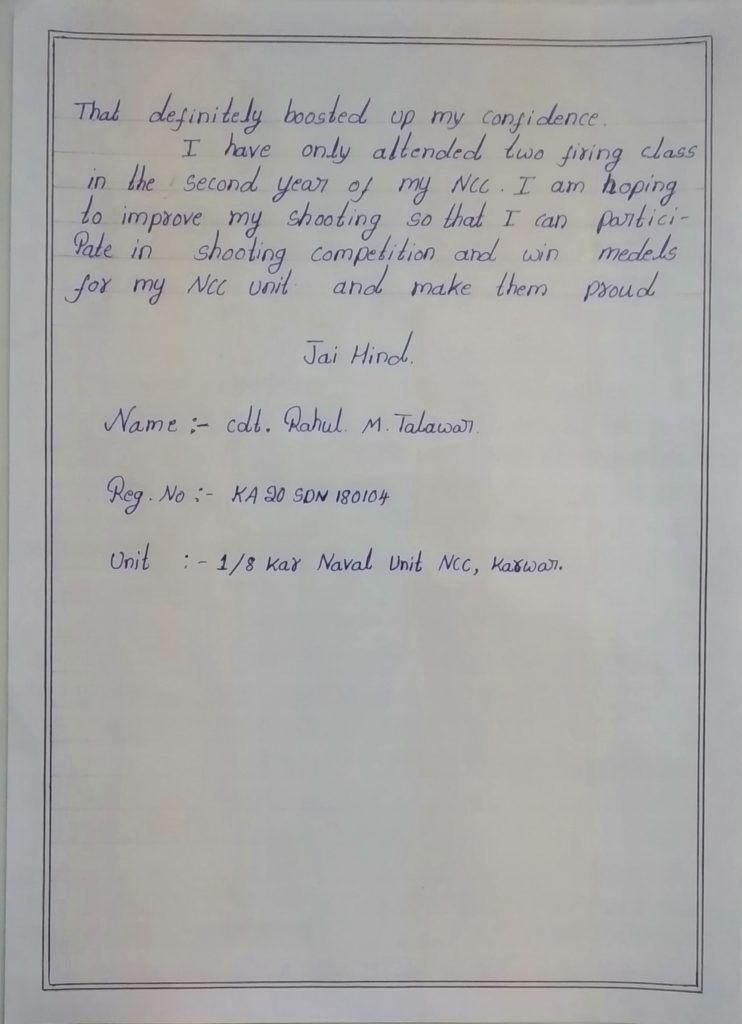 That definitely boosted up my confidence.
I have only attended two firing class
in the second year of my NCC. I am hoping
to improve my shooting so that I can partici-
Pate in shooting competition and win medels
for my NCC unit and make them proud
Jai Hind.
Name :- cdt. Rahul. M. Talawar.
Reg. No :- KA 20 SDN 180104
Unit :- 1/8 Kar Naval Unit NCC, Karwar.